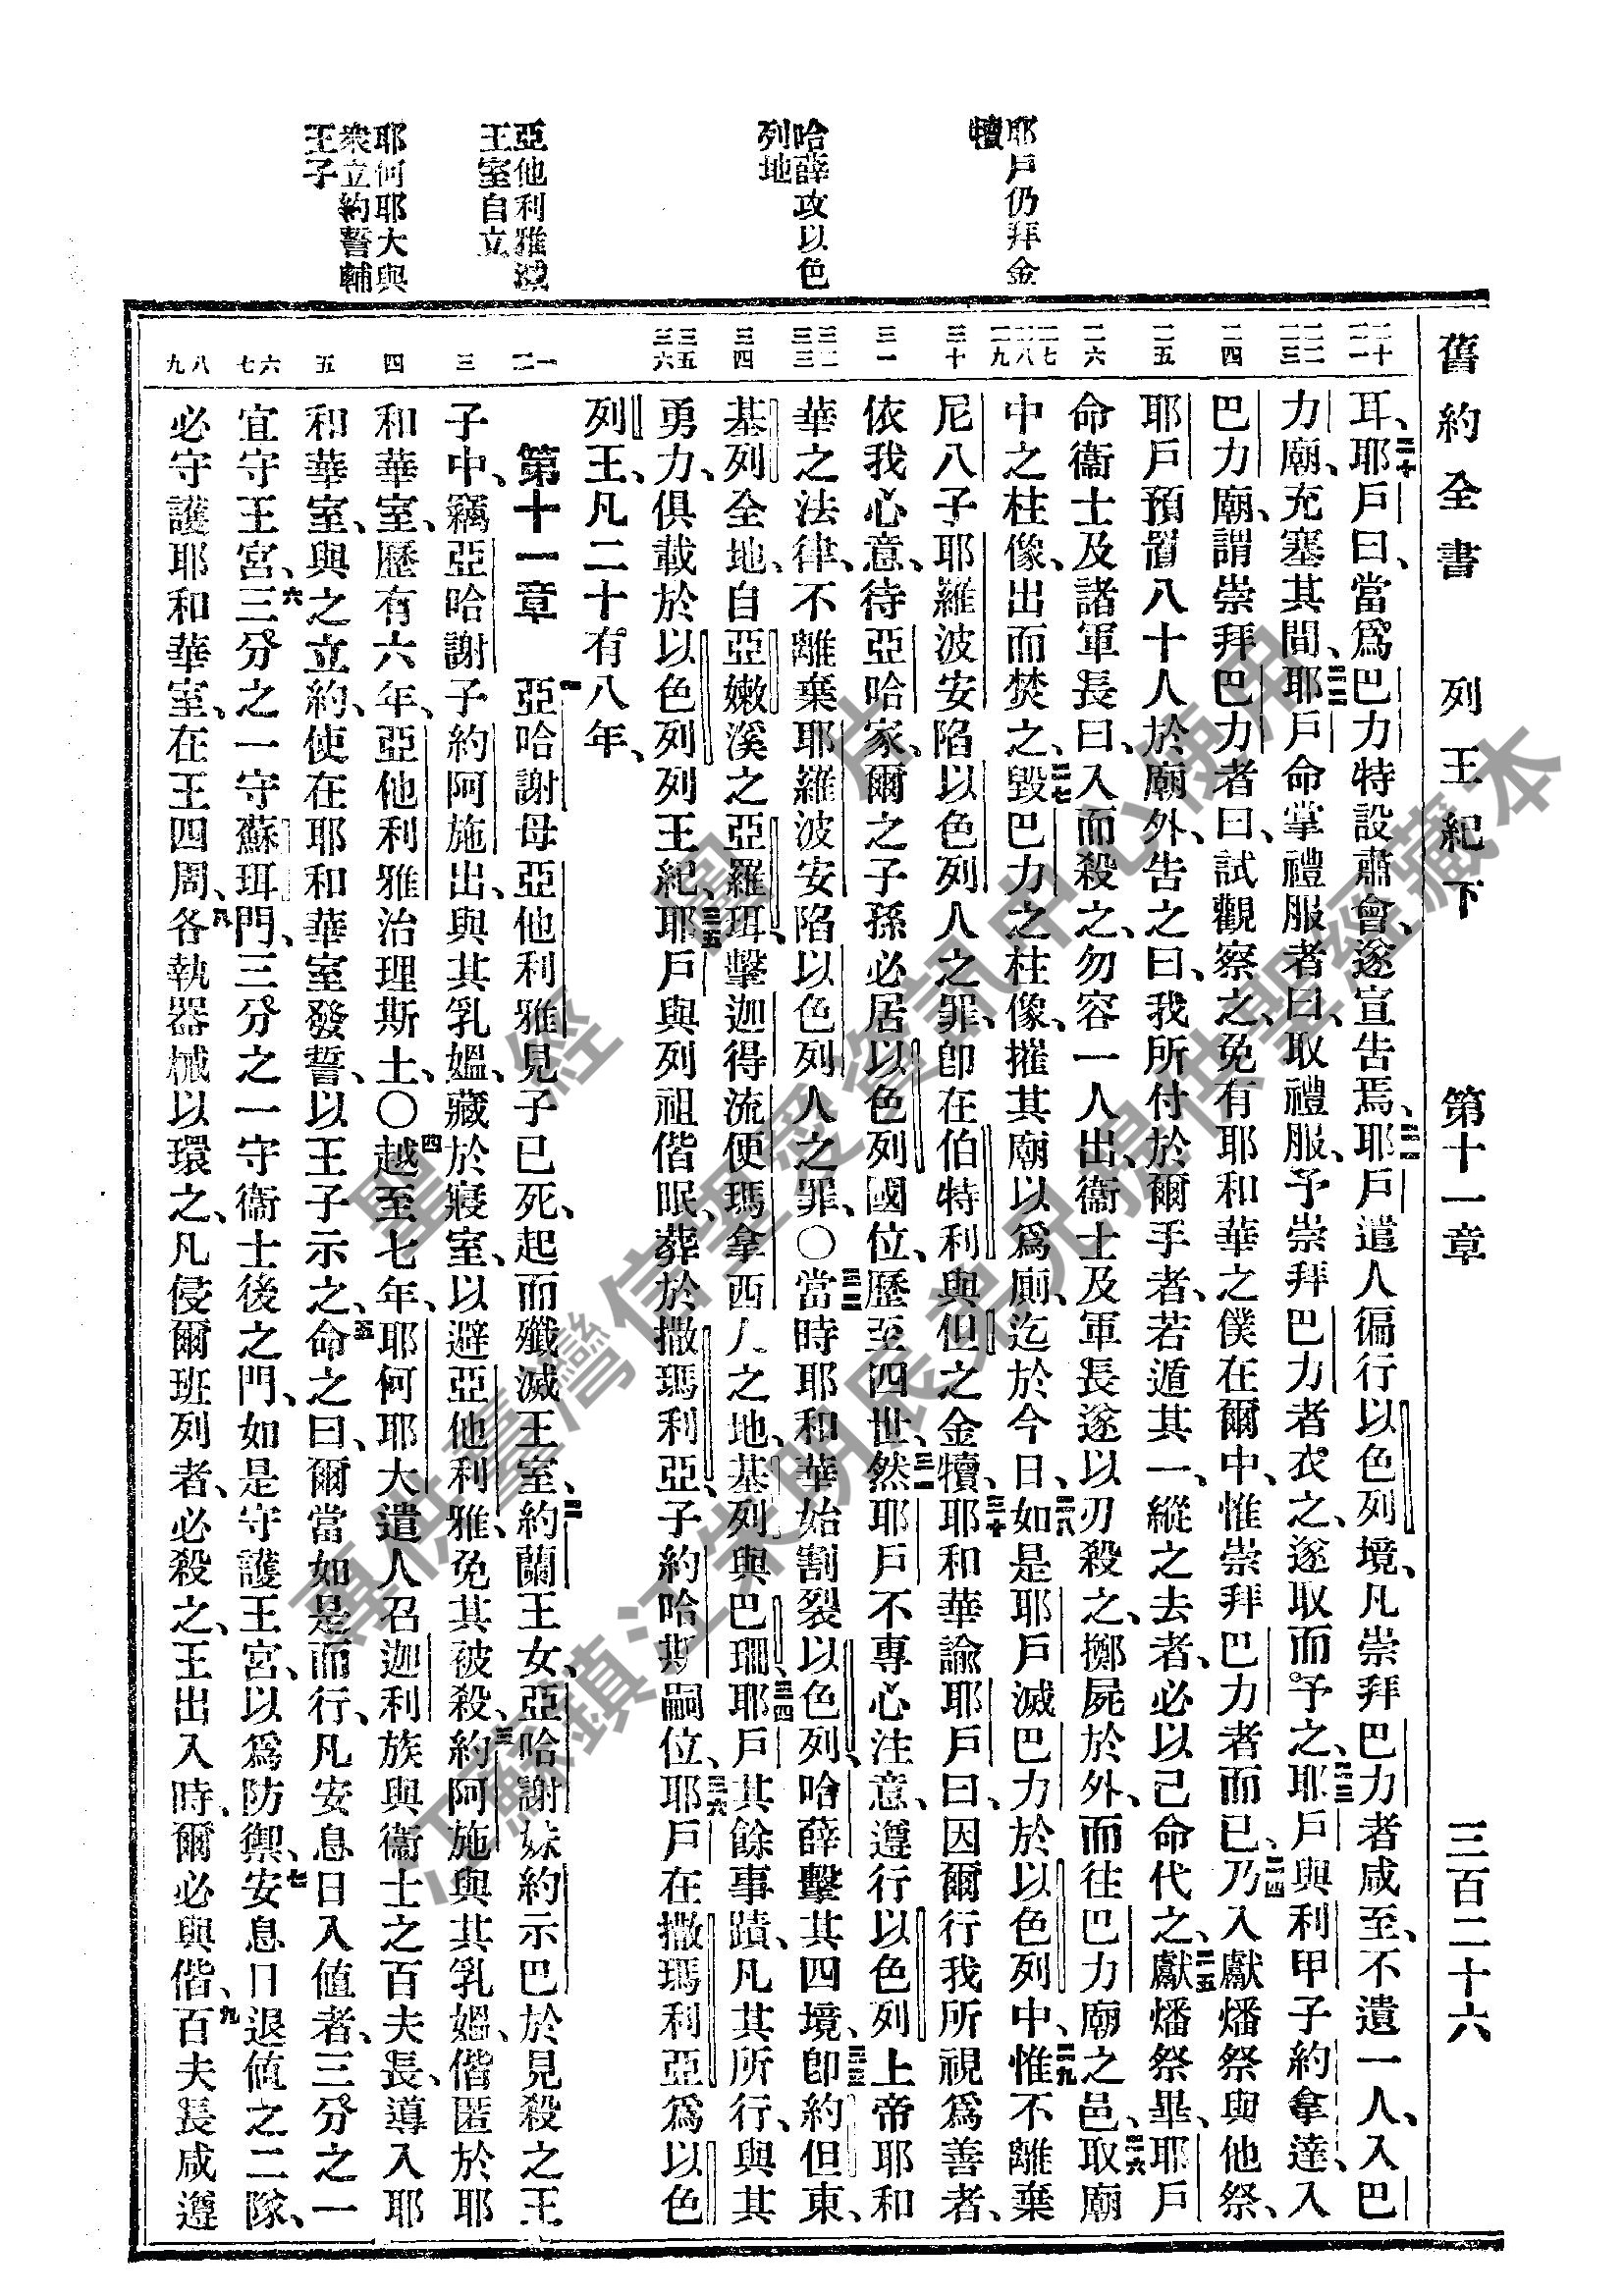 舊約全書　列王紀下　第十一章　三百二十六
耶戶仍拜金
犢
哈薛攻以色
列地
亞他利雅滅
王室自立
耶何耶大與
衆立約誓輔
王子
二十 二一
二二 二三
二四
二五
二六
二七 二八 二九
三十
三一
三二 三三
三四
三五 三六
一 二
三
四
五
六 七
八 九
耳、二十耶戶曰、當爲巴力特設肅會、遂宣告焉、二一耶戶遣人徧行以色列境、凡崇拜巴力者咸至、不遺一人、入巴
力廟、充塞其間、二二耶戶命掌禮服者曰、取禮服、予崇拜巴力者衣之、遂取而予之、二三耶戶與利甲子約拿達、入
巴力廟、謂崇拜巴力者曰、試觀察之、免有耶和華之僕在爾中、惟崇拜巴力者而已、二四乃入獻燔祭與他祭、
耶戶預置八十人於廟外、告之曰、我所付於爾手者、若遁其一、縱之去者、必以己命代之、二五獻燔祭畢、耶戶
命衞士及諸軍長曰、入而殺之、勿容一人出、衞士及軍長遂以刃殺之、擲屍於外、而往巴力廟之邑、二六取廟
中之柱像、出而焚之、二七毀巴力之柱像、摧其廟以爲廁、迄於今日、二八如是耶戶滅巴力於以色列中、二九惟不離棄
尼八子耶羅波安陷以色列人之罪、卽在伯特利與但之金犢、三十耶和華諭耶戶曰、因爾行我所視爲善者、
依我心意、待亞哈家、爾之子孫必居以色列國位、歷至四世、三一然耶戶不專心注意、遵行以色列上帝耶和
華之法律、不離棄耶羅波安陷以色列人之罪、〇三二當時耶和華始割裂以色列、哈薛擊其四境、三三卽約但東、
基列全地、自亞嫩溪之亞羅珥、擊迦得流便瑪拿西人之地、基列與巴珊、三四耶戶其餘事蹟、凡其所行、與其
勇力、俱載於以色列列王紀、三五耶戶與列祖偕眠、葬於撒瑪利亞、子約哈斯嗣位、三六耶戶在撒瑪利亞爲以色
列王、凡二十有八年、
第十一章　一亞哈謝母亞他利雅見子已死、起而殲滅王室、二約蘭王女、亞哈謝妹約示巴於見殺之王
子中、竊亞哈謝子約阿施出、與其乳媼、藏於寢室、以避亞他利雅、免其被殺、三約阿施與其乳媼、偕匿於耶
和華室、歷有六年、亞他利雅治理斯土、〇四越至七年、耶何耶大遣人召迦利族與衞士之百夫長、導入耶
和華室、與之立約、使在耶和華室發誓、以王子示之、五命之曰、爾當如是而行、凡安息日入値者、三分之一
宜守王宮、六三分之一守蘇珥門、三分之一守衞士後之門、如是守護王宮、以爲防禦、七安息日退値之二隊、
必守護耶和華室、在王四周、八各執器械以環之、凡侵爾班列者、必殺之、王出入時、爾必與偕、九百夫長咸遵
聖經圖片
專供臺灣信望愛資訊中心使用
江蘇鎮江朱明辰弟兄提供聖經藏本